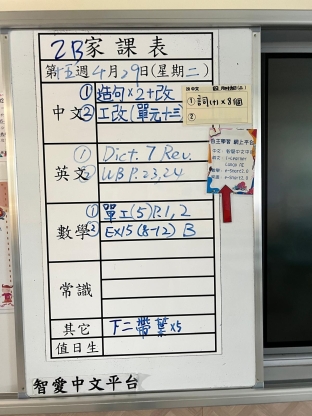 2B家課表
第十五週4月29日(星期二)
中文
①造句×2+改
②工改(單元十三)
①詞(十)×8個
②
英文
① Dict. 7 Rev.
② WB P.23,24
自主學習 網上平台
數學
①單工(5)P.1,2
②EX15(8-12) B
常識
其它
下二帶葉×5
值日生
智愛中文平台